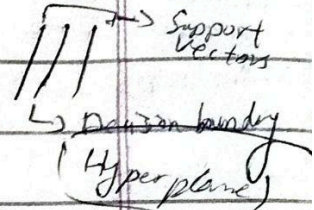 Support
Vectors
Decision boundry
(Hyper plane)